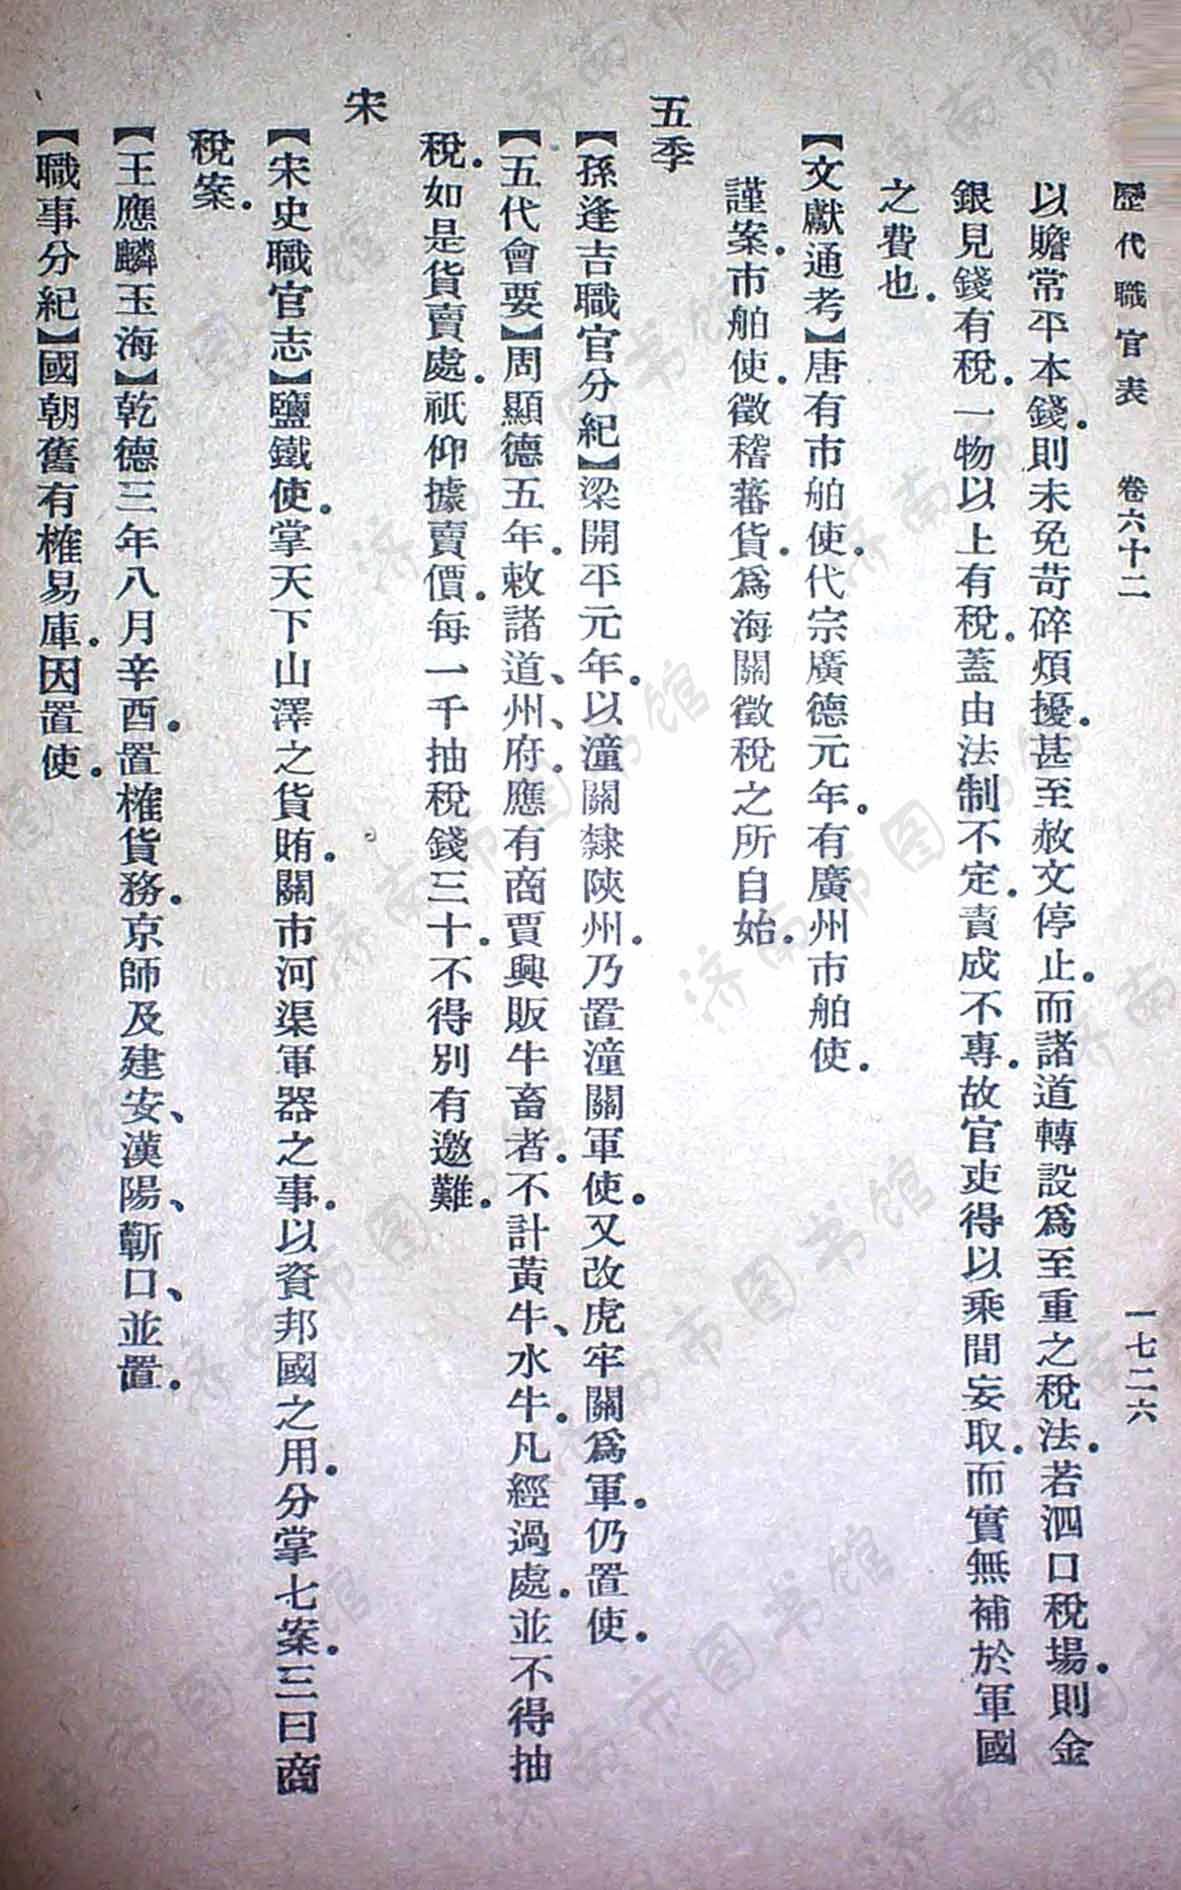 歷代職官表　卷六十二　一七二六
以贍常平本錢。則未免苛碎煩擾。甚至赦文停止。而諸道轉設爲至重之稅法。若泗口稅場。則金
銀見錢有稅。一物以上有稅。蓋由法制不定。責成不專。故官吏得以乘間妄取。而實無補於軍國
之費也。
【文獻通考】唐有市舶使。代宗廣德元年。有廣州市舶使。
謹案。市舶使。徵稽蕃貨。爲海關徵稅之所自始。
五季
【孫逢吉職官分紀】梁開平元年。以潼關隸陝州。乃置潼關軍使。又改虎牢關爲軍。仍置使。
【五代會要】周顯德五年。敕諸道、州、府。應有商賈興販牛畜者。不計黃牛、水牛。凡經過處。並不得抽
稅。如是貨賣處。祇仰據賣價。每一千抽稅錢三十。不得別有邀難。
宋
【宋史職官志】鹽鐵使。掌天下山澤之貨賄。關市河渠軍器之事。以資邦國之用。分掌七案。三曰商
稅案。
【王應麟玉海】乾德三年八月辛酉。置榷貨務。京師及建安、漢陽、蘄口、並置。
【職事分紀】國朝舊有榷易庫。因置使。
济南市图书馆